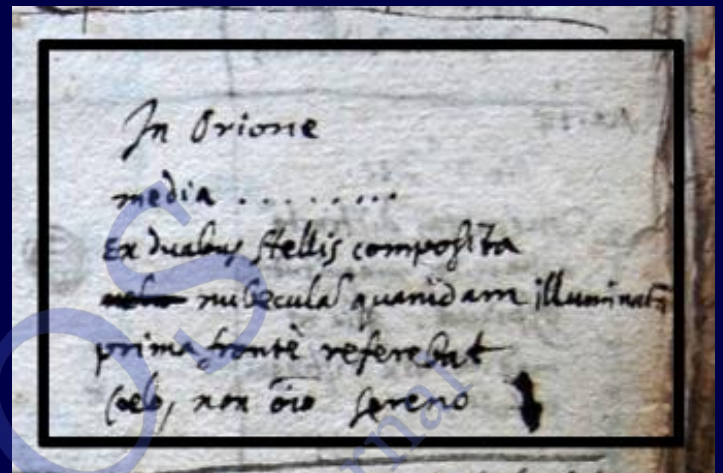 In Orione
media . . . . . . . .
Ex dualbus stellis composita
nubecula quamdam illuminatā
prima fronte referebat
Coelo, non oīo sereno